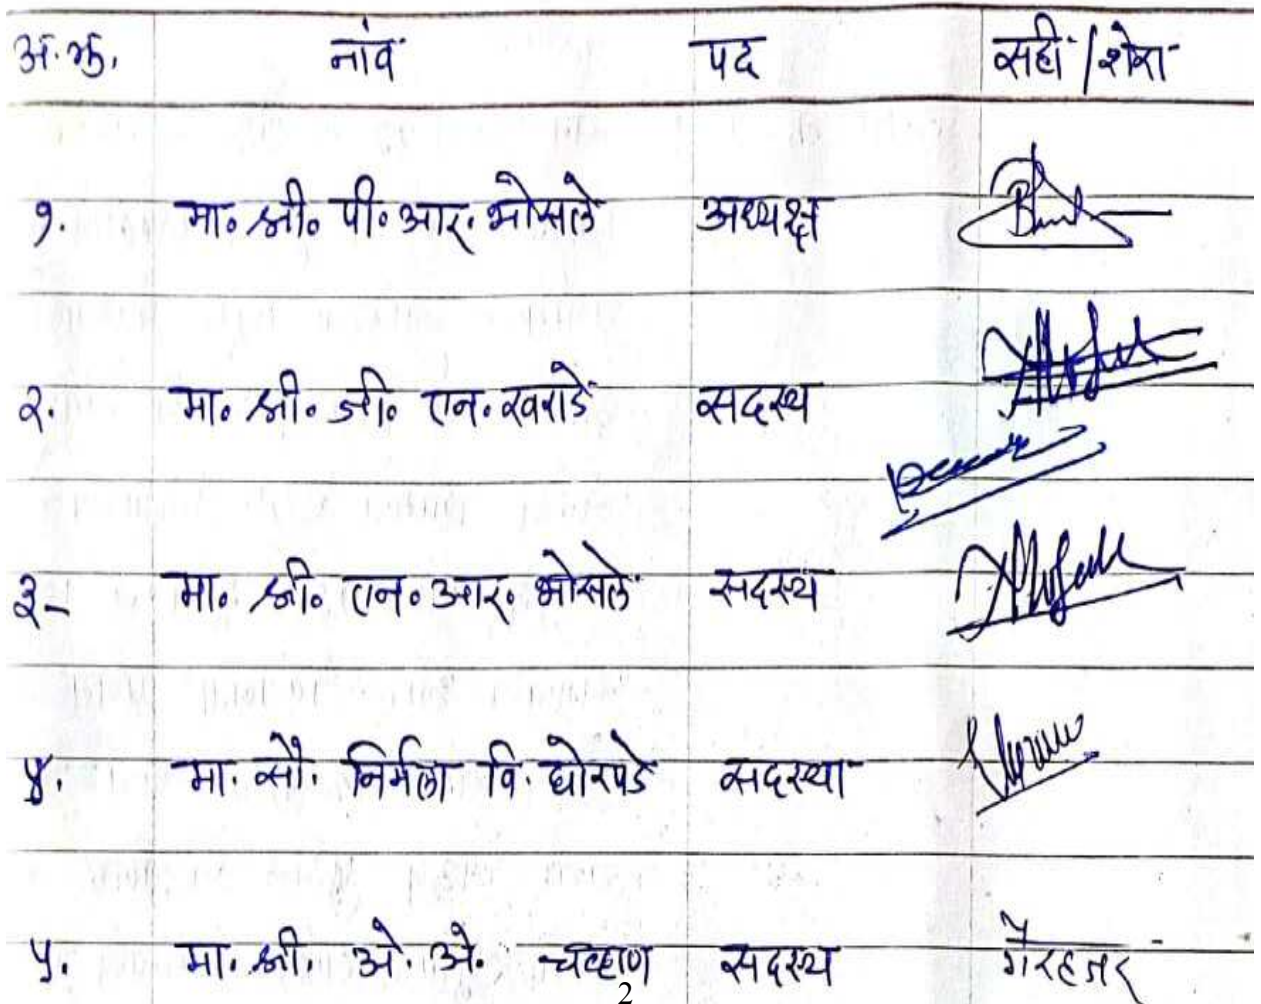 अ.क्र. नांव पद सही/शेरा
१. मा. श्री. पी. आर. भोसले अध्यक्ष
२. मा. श्री. जी. एन. खराडे सदस्य
३- मा. श्री. एन. आर. भोसले सदस्य
४. मा. सौ. निर्मला वि. घोरपडे सदस्या
५. मा. श्री. ओ. ओ. चव्हाण सदस्य गैरहजर
2